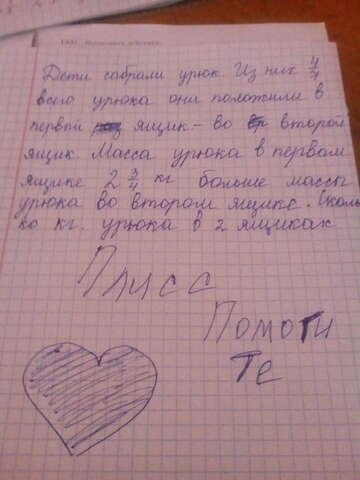 Дети собрали урюк. Из них 4/7
всего урюка они положили в
первый ящик - во втором
ящик. Масса урюка в первом
ящике 2 3/4 кг больше массы
урюка во втором ящике. Сколь
ко кг. урюка в 2 ящиках
Плисс
Помоги
те